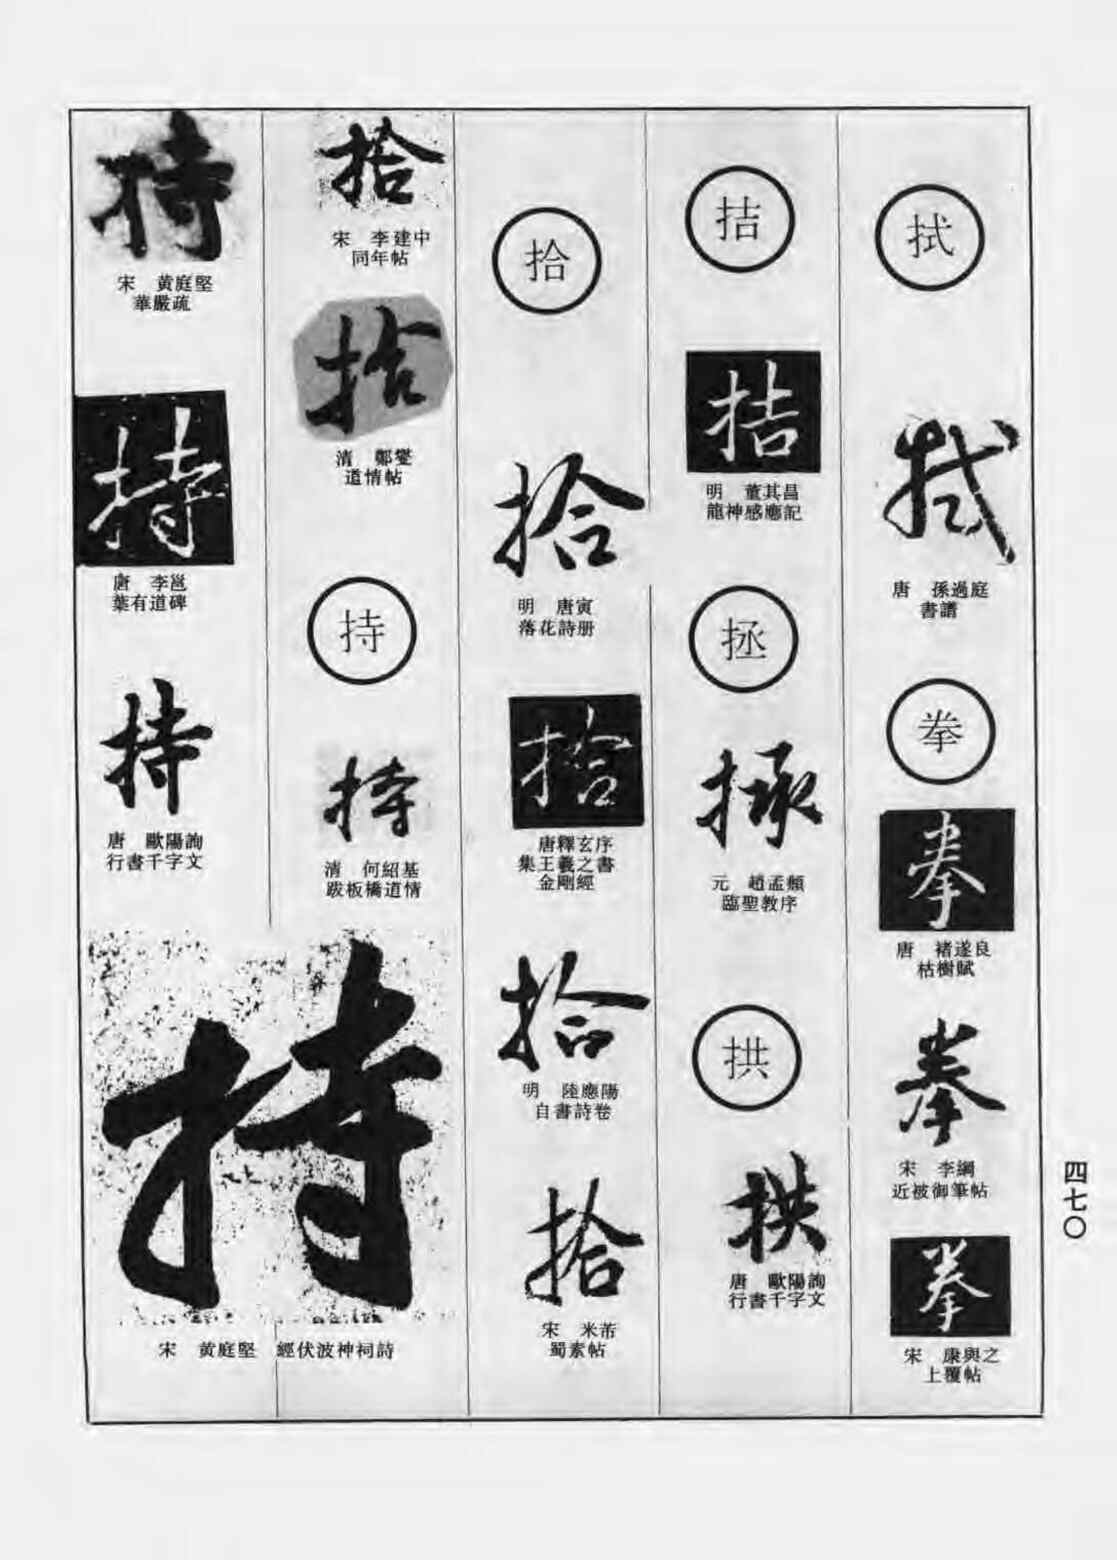 拭
拭
唐　孫過庭
書譜
拳
拳
唐　褚遂良
枯樹賦
拳
宋　李綱
近被御筆帖
拳
宋　康與之
上覆帖
拮
拮
明　董其昌
龍神感應記
拯
拯
元　趙孟頫
臨聖教序
拱
拱
唐　歐陽詢
行書千字文
拾
拾
明　唐寅
落花詩册
拾
唐釋玄序
集王羲之書
金剛經
拾
明　陸應陽
自書詩卷
拾
宋　米芾
蜀素帖
拾
宋　李建中
同年帖
拾
清　鄭燮
道情帖
持
持
清　何紹基
跋板橋道情
持
宋　黄庭堅
華嚴疏
持
唐　李邕
葉有道碑
持
唐　歐陽詢
行書千字文
持
宋　黄庭堅　經伏波神祠詩
四七〇